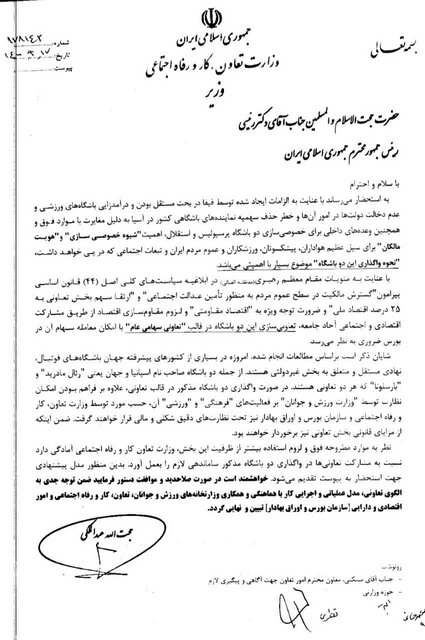 بسمه تعالی
جمهوری اسلامی ایران
وزارت تعاون، کار و رفاه اجتماعی
وزیر
شماره ۹۷۸۱۴۲
تاریخ ۱۴۰۰.۹.۱۷
پیوست
حضرت حجت الاسلام و المسلمین جناب آقای دکتر رئیسی
رئیس جمهور محترم جمهوری اسلامی ایران
با سلام و احترام
به استحضار می‌رساند با عنایت به الزامات ایجاد شده توسط فیفا در بحث مستقل بودن و درآمدزایی باشگاه‌های ورزشی و
عدم دخالت دولت‌ها در امور آن‌ها و خطر حذف سهمیه نماینده‌های باشگاهی کشور در آسیا به دلیل مغایرت با موارد فوق و
همچنین وعده‌های داخلی برای خصوصی‌سازی دو باشگاه پرسپولیس و استقلال، اهمیت "شیوه خصوصی سازی" و "هویت
مالکان" برای سیل عظیم هواداران، پیشکسوتان، ورزشکاران و عموم مردم ایران و تبعات اجتماعی که در پی خواهد داشت،
"نحوه واگذاری این دو باشگاه" موضوع بسیار با اهمیتی می‌باشد.
با عنایت به منویات مقام معظم رهبری در ابلاغیه سیاست‌های کلی اصل (۴۴) قانون اساسی
پیرامون "گسترش مالکیت در سطح عموم مردم به منظور تأمین عدالت اجتماعی" و "ارتقاء سهم بخش تعاونی به
۲۵ درصد اقتصاد ملی" و ضرورت توجه ویژه به "اقتصاد مقاومتی" و لزوم مقاوم‌سازی اقتصاد از طریق مشارکت
اقتصادی و اجتماعی آحاد جامعه، تعاونی‌سازی این دو باشگاه در قالب "تعاونی سهامی عام" با امکان معامله سهام آن در
بورس ضروری به نظر می‌رسد.
شایان ذکر است براساس مطالعات انجام شده، امروزه در بسیاری از کشورهای پیشرفته جهان باشگاه‌های فوتبال،
نهادی مستقل و متعلق به بخش غیردولتی هستند. از جمله دو باشگاه صاحب نام اسپانیا و جهان یعنی "رئال مادرید" و
"بارسلونا" که هر دو تعاونی هستند. در صورت واگذاری دو باشگاه مذکور در قالب تعاونی، علاوه بر فراهم بودن امکان
نظارت توسط "وزارت ورزش و جوانان" بر فعالیت‌های "فرهنگی" و "ورزشی" آن، حسب مورد توسط وزارت تعاون، کار
و رفاه اجتماعی و سازمان بورس و اوراق بهادار نیز تحت نظارت‌های دقیق شکلی و مالی قرار خواهند گرفت. ضمن اینکه
از مزایای قانونی بخش تعاونی نیز برخوردار خواهند بود.
نظر به موارد مطروحه فوق و لزوم استفاده بیشتر از ظرفیت این بخش، وزارت تعاون کار و رفاه اجتماعی آمادگی دارد
نسبت به مشارکت تعاونی‌ها در واگذاری دو باشگاه مذکور ساماندهی لازم را بعمل آورد. بدین منظور مدل پیشنهادی
جهت استحضار به پیوست تقدیم می‌شود. خواهشمند است در صورت صلاحدید و موافقت دستور فرمایید ضمن توجه جدی به
الگوی تعاونی، مدل عملیاتی و اجرایی کار با هماهنگی و همکاری وزارتخانه‌های ورزش و جوانان، تعاون، کار و رفاه اجتماعی و امور
اقتصادی و دارایی [سازمان بورس و اوراق بهادار] تبیین و نهایی گردد.
حجت الله عبدالملکی
رونوشت:
- جناب آقای مسکنی، معاون محترم امور تعاون جهت آگاهی و پیگیری لازم
- حوزه وزارتی